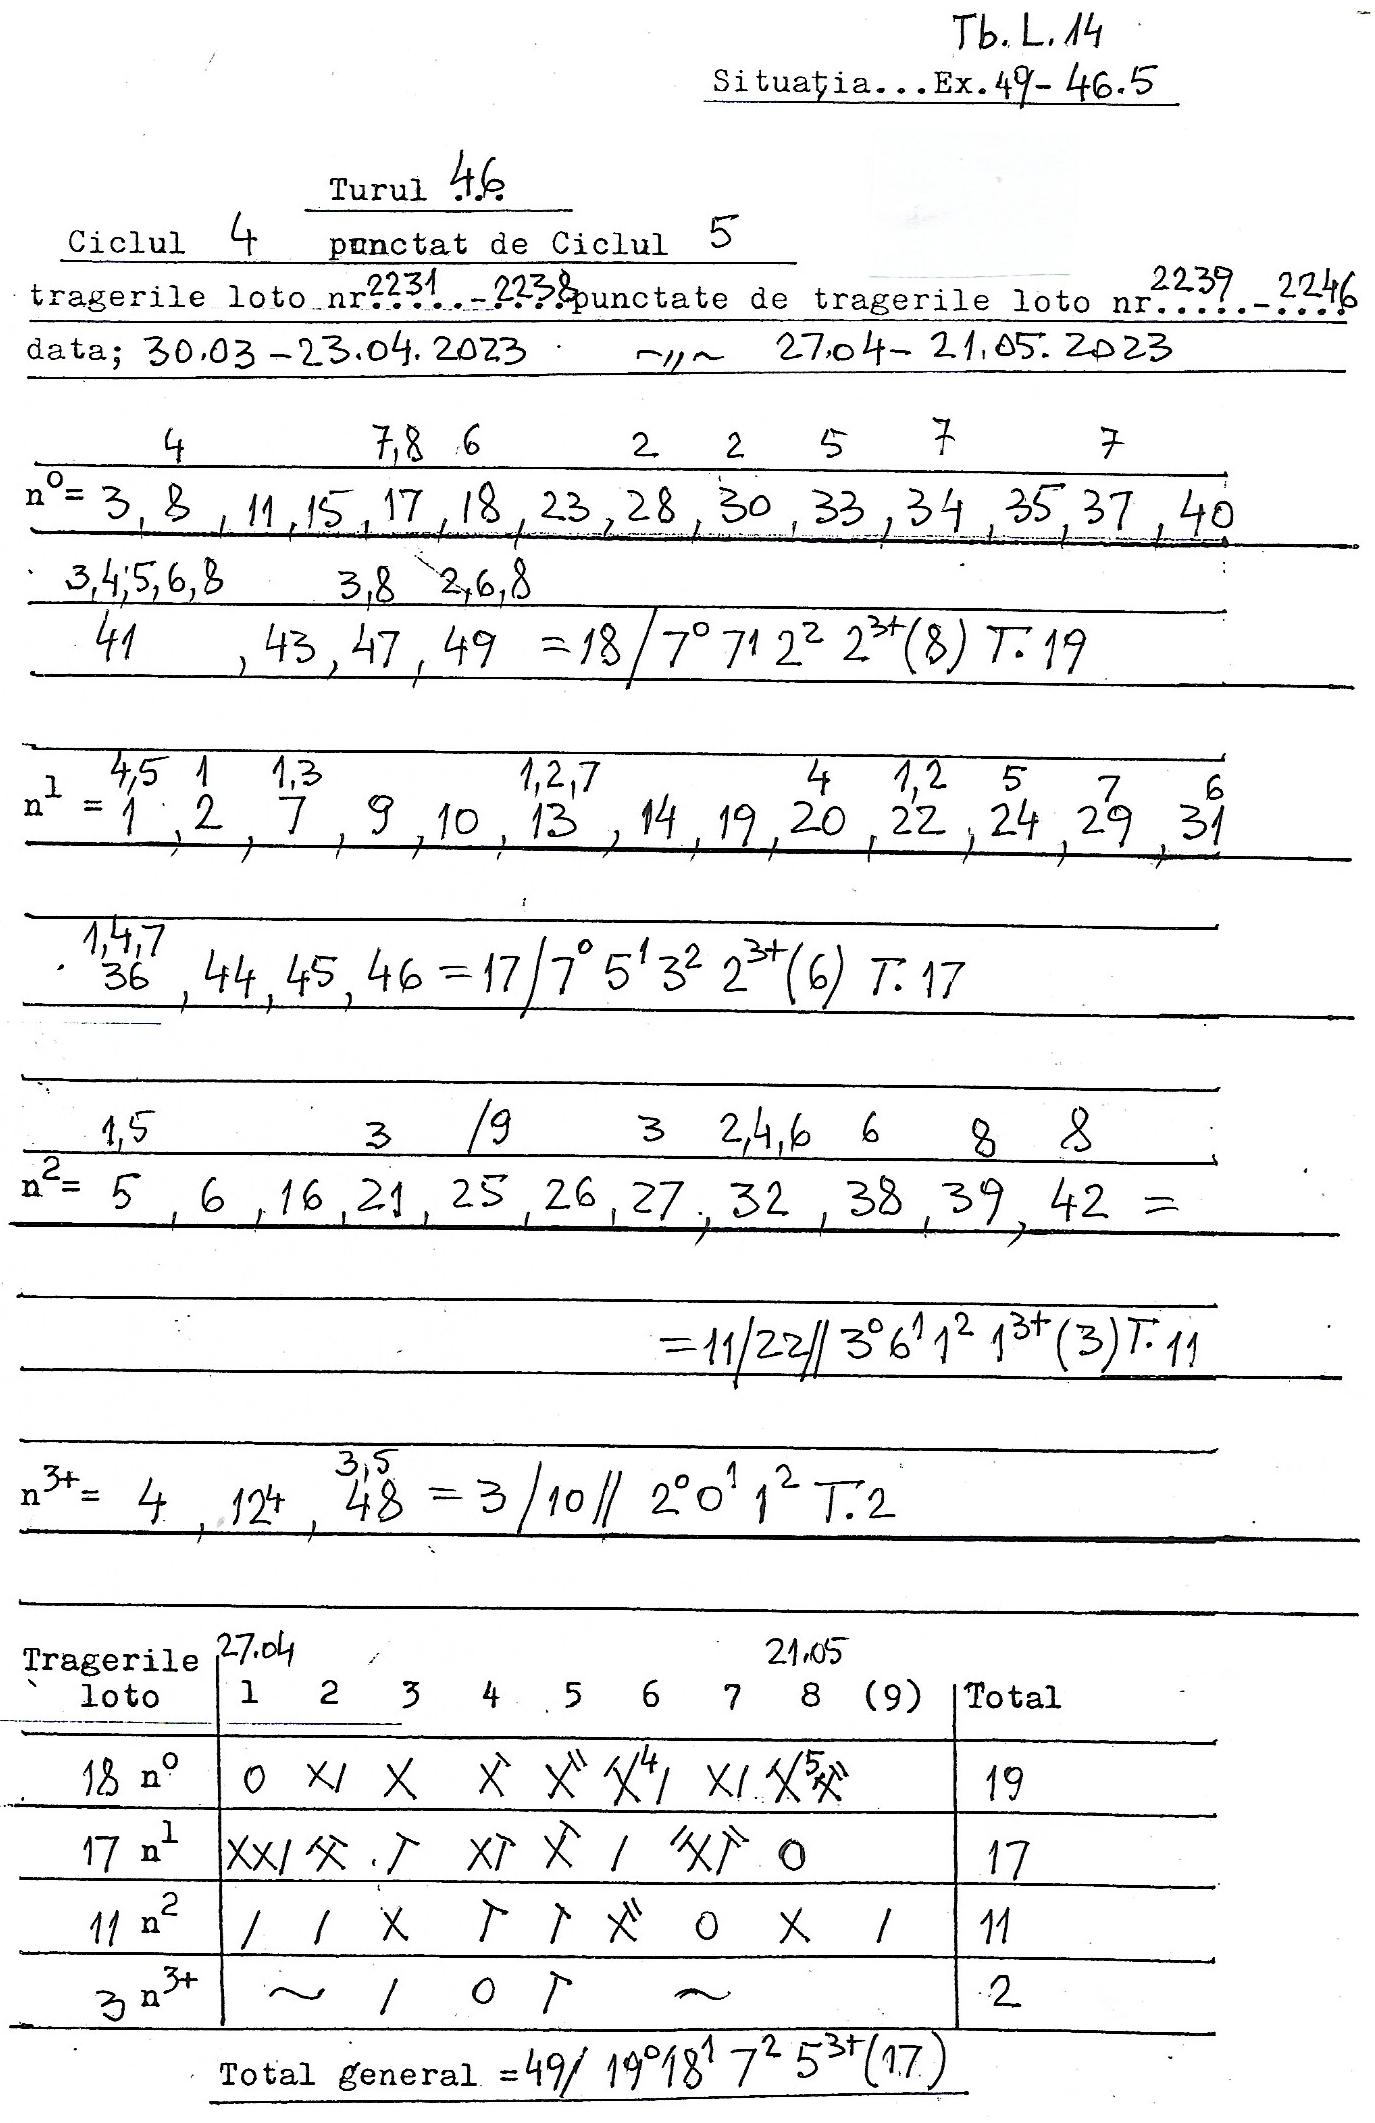 Tb. L. 14
Situația...Ex. 49 - 46.5
Turul 46
Ciclul 4 punctat de Ciclul 5
tragerile loto nr 2231 - 2238 punctate de tragerile loto nr 2239 - 2246
data; 30.03 - 23.04.2023 ~„~ 27.04 - 21.05.2023
4 7,8 6 2 2 5 7 7
n⁰= 3, 8, 11, 15, 17, 18, 23, 28, 30, 33, 34, 35, 37, 40
3,4,5,6,8 3,8 2,6,8
41, 43, 47, 49 = 18 / 7⁰ 7¹ 2² 2³⁺(8) T. 19
4,5 1 1,3 1,2,7 4 1,2 5 7 6
n¹ = 1, 2, 7, 9, 10, 13, 14, 19, 20, 22, 24, 29, 31
1,4,7
36, 44, 45, 46 = 17 / 7⁰ 5¹ 3² 2³⁺(6) T. 17
1,5 3 /9 3 2,4,6 6 8 8
n²= 5, 6, 16, 21, 25, 26, 27, 32, 38, 39, 42 =
= 11/22// 3⁰ 6¹ 1² 1³⁺(3) T. 11
3,5
n³⁺= 4, 12⁴, 48 = 3 /10// 2⁰ 0¹ 1² T. 2
27.04 21.05
Tragerile
loto 1 2 3 4 5 6 7 8 (9) Total
18 n⁰ 19
17 n¹ 17
11 n² 11
3 n³⁺ 2
Total general = 49/ 19⁰ 18¹ 7² 5³⁺(17)